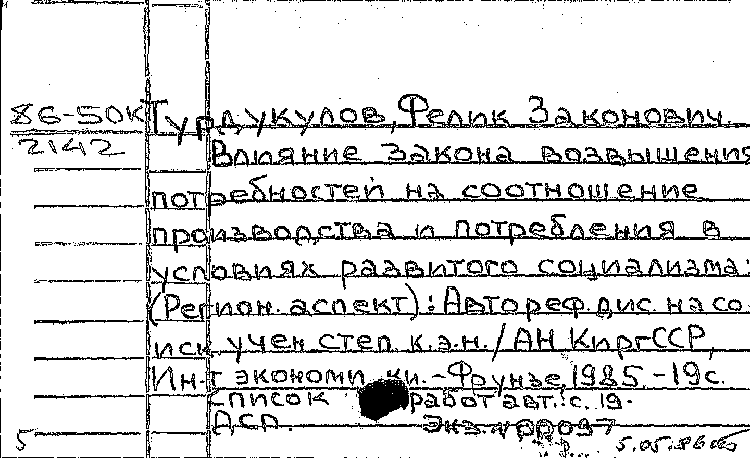 86-50К Турдукулов, Фелик Законович.
2142
Влияние закона возвышения
потребностей на соотношение
производства и потребления в
условиях развитого социализма:
(Регион. аспект): Автореф. дис. на со
иск. учен. степ. к.э.н. / АН КиргССР,
Ин-т экономики. - Фрунзе, 1985. - 19 с.
Список работ авт.: с. 19.
ДСП.
5 5.05.86